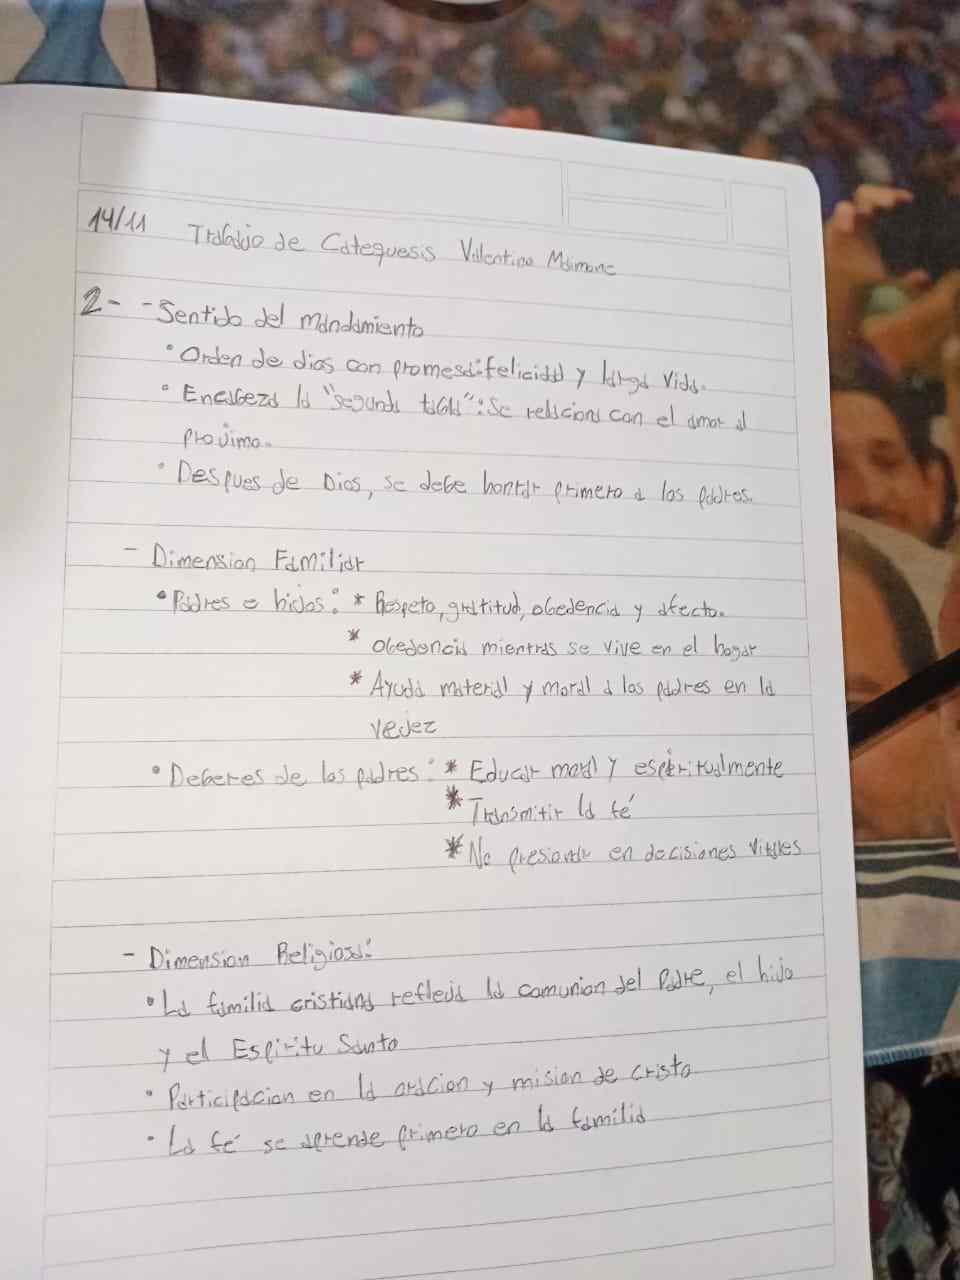 14/11 Trabajo de Catequesis Valentino Maimone
2- - Sentido del mandamiento
• Orden de dios con promesa: felicidad y larga vida.
• Encabeza la "segunda tabla": se relaciona con el amor al
projimo.
• Despues de Dios, se debe honrar primero a los padres.
- Dimension Familiar
• Padres e hijos: * Respeto, gratitud, obedencia y afecto.
* Obedencia mientras se vive en el hogar
* Ayuda material y moral a los padres en la
vejez
• Deberes de los padres: * Educar moral y espiritualmente
* Transmitir la fé
* No presionar en decisiones vitales
- Dimension Religiosa:
• La familia cristiana refleja la comunion del Padre, el hijo
y el Espiritu Santo
• Participacion en la oracion y mision de cristo
• La fé se aprende primero en la familia